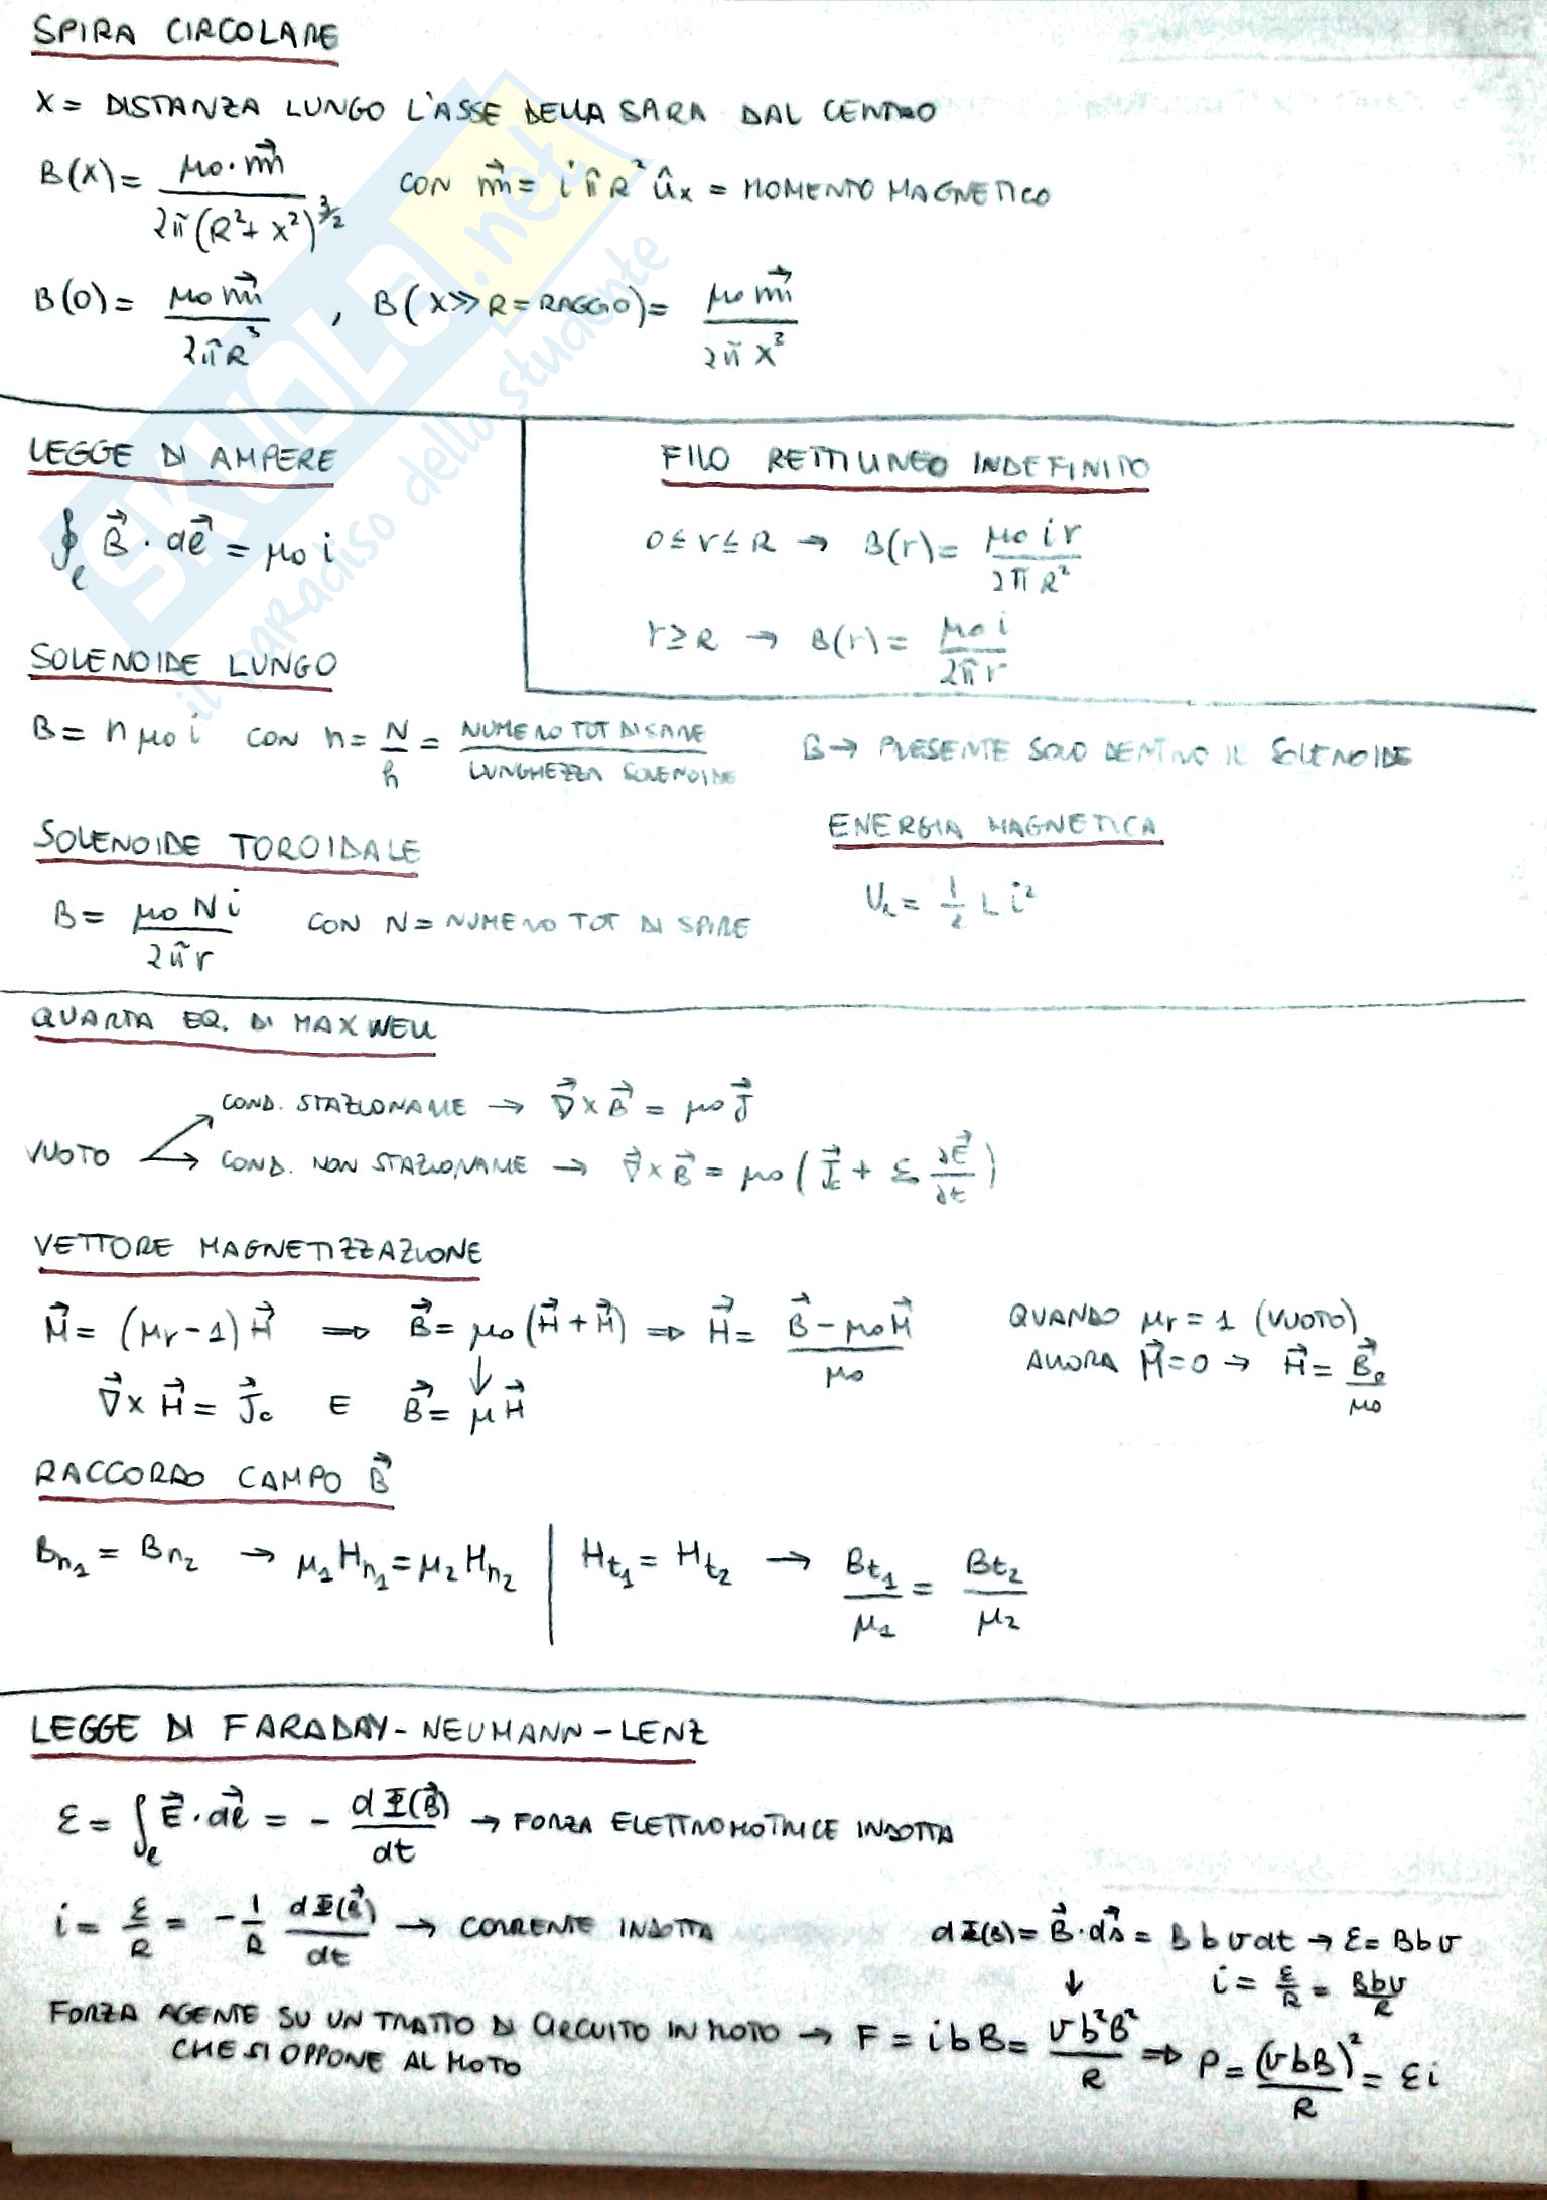 SPIRA CIRCOLARE
X = DISTANZA LUNGO L'ASSE DELLA SPIRA DAL CENTRO
B(X) = μ₀·m⃗ / 2π(R²+X²)^3/2 CON m⃗ = iπR² û_x = MOMENTO MAGNETICO
B(0) = μ₀m⃗ / 2πR³ , B(X≫R=RAGGIO) = μ₀m⃗ / 2πX³
LEGGE DI AMPERE
∮_ℓ B⃗·dℓ⃗ = μ₀i
FILO RETTILINEO INDEFINITO
0≤r≤R → B(r) = μ₀ir / 2πR²
r≥R → B(r) = μ₀i / 2πr
SOLENOIDE LUNGO
B = nμ₀i CON n = N/h = NUMERO TOT DI SPIRE / LUNGHEZZA SOLENOIDE
B → PRESENTE SOLO DENTRO IL SOLENOIDE
SOLENOIDE TOROIDALE
B = μ₀Ni / 2πr CON N = NUMERO TOT DI SPIRE
ENERGIA MAGNETICA
U_L = 1/2 L i²
QUARTA EQ. DI MAXWELL
VUOTO
COND. STAZIONARIE → ∇⃗×B⃗ = μ₀J⃗
COND. NON STAZIONARIE → ∇⃗×B⃗ = μ₀(J⃗c + ε₀ ∂E⃗/∂t)
VETTORE MAGNETIZZAZIONE
M⃗ = (μr-1)H⃗ ⇒ B⃗ = μ₀(H⃗+M⃗) ⇒ H⃗ = B⃗-μ₀M⃗ / μ₀
↓
∇⃗×H⃗ = J⃗c E B⃗ = μH⃗
QUANDO μr = 1 (VUOTO)
ALLORA M⃗=0 → H⃗ = B⃗₀/μ₀
RACCORDO CAMPO B⃗
Bn₁ = Bn₂ → μ₁Hn₁ = μ₂Hn₂ | Ht₁ = Ht₂ → Bt₁/μ₁ = Bt₂/μ₂
LEGGE DI FARADAY-NEUMANN-LENZ
ε = ∫_ℓ E⃗·dℓ⃗ = - dΦ(B⃗)/dt → FORZA ELETTROMOTRICE INDOTTA
i = ε/R = -1/R dΦ(B⃗)/dt → CORRENTE INDOTTA
dΦ(B) = B⃗·ds⃗ = B b v dt → ε = Bbv
↓ i = ε/R = Bbv/R
FORZA AGENTE SU UN TRATTO DI CIRCUITO IN MOTO → F = ibB = vb²B²/R ⇒ P = (vbB)²/R = εi
CHE SI OPPONE AL MOTO
SKUOLA.net
il paradiso dello studente